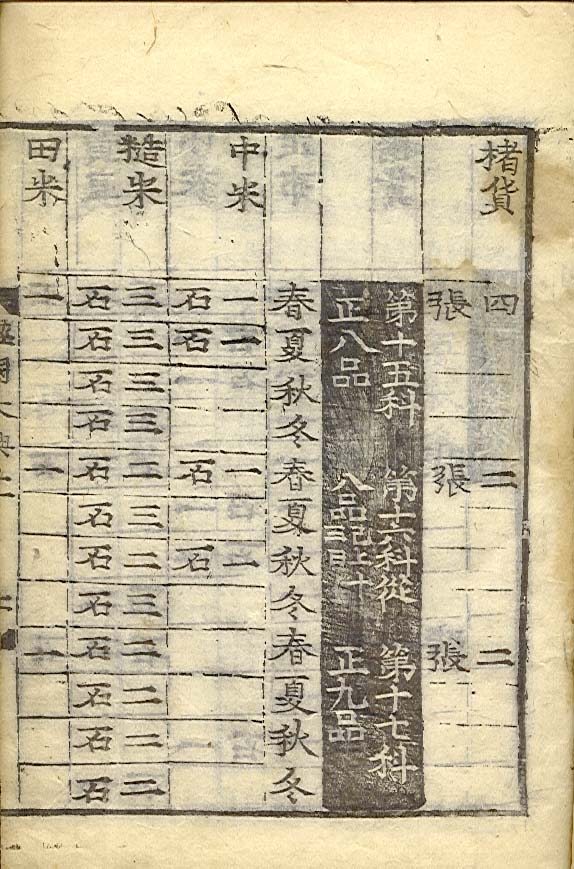 楮貨 四 二 二
張 張 張
第十五科 第十六科從 第十七科
正八品 八品 正九品
春夏秋冬春夏秋冬春夏秋冬
中米 一 一 一 一
石 石 石 石
糙米 三 三 三 三 二 三 二 三 二 二 二 二
石 石 石 石 石 石 石 石 石 石 石 石
田米 一 一 一